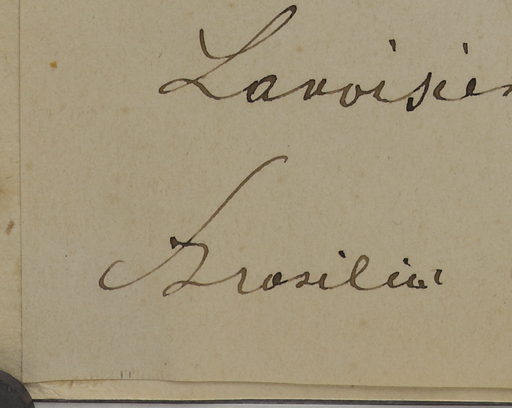 Lavoisier
Brasilia